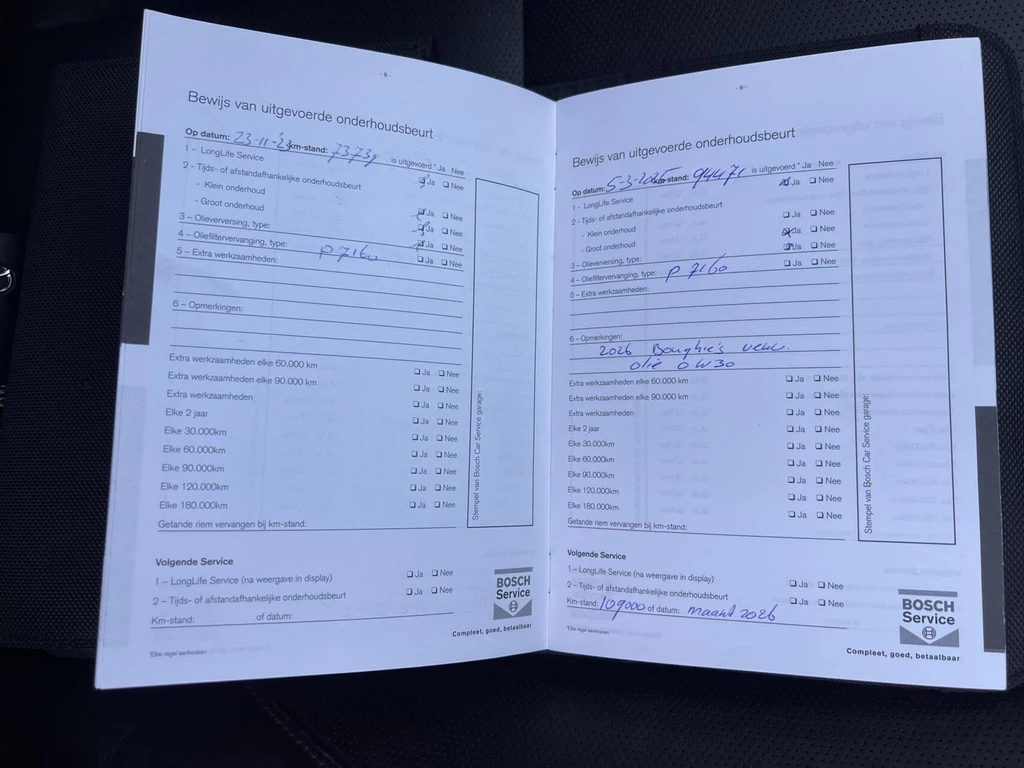 - 8 -
Bewijs van uitgevoerde onderhoudsbeurt
Op datum: 23-11-'23 km-stand: is uitgevoerd * Ja Nee
1 - LongLife Service Ja Nee
2 - Tijds- of afstandafhankelijke onderhoudsbeurt
- Klein onderhoud Ja Nee
- Groot onderhoud Ja Nee
3 – Olieverversing, type: Ja Nee
4 – Oliefiltervervanging, type: P7160 Ja Nee
5 – Extra werkzaamheden:
6 – Opmerkingen:
Extra werkzaamheden elke 60.000 km Ja Nee
Extra werkzaamheden elke 90.000 km Ja Nee
Extra werkzaamheden Ja Nee
Elke 2 jaar Ja Nee
Elke 30.000km Ja Nee
Elke 60.000km Ja Nee
Elke 90.000km Ja Nee
Elke 120.000km Ja Nee
Elke 180.000km
Getande riem vervangen bij km-stand:
Stempel van Bosch Car Service garage:
Volgende Service
1 – LongLife Service (na weergave in display) Ja Nee
2 – Tijds- of afstandafhankelijke onderhoudsbeurt Ja Nee
Km-stand: of datum:
BOSCH
Service
Compleet, goed, betaalbaar
*Elke regel aankruisen
- 9 -
Bewijs van uitgevoerde onderhoudsbeurt
Op datum: 5-3-2025 km-stand: 94471 is uitgevoerd * Ja Nee
1 - LongLife Service Ja Nee
2 - Tijds- of afstandafhankelijke onderhoudsbeurt
- Klein onderhoud Ja Nee
- Groot onderhoud Ja Nee
3 – Olieverversing, type: Ja Nee
4 – Oliefiltervervanging, type: P 7160 Ja Nee
5 – Extra werkzaamheden:
6 – Opmerkingen:
2026 Boughie's
olie 0W30
Extra werkzaamheden elke 60.000 km Ja Nee
Extra werkzaamheden elke 90.000 km Ja Nee
Extra werkzaamheden Ja Nee
Elke 2 jaar Ja Nee
Elke 30.000km Ja Nee
Elke 60.000km Ja Nee
Elke 90.000km Ja Nee
Elke 120.000km Ja Nee
Elke 180.000km Ja Nee
Getande riem vervangen bij km-stand:
Stempel van Bosch Car Service garage:
Volgende Service
1 – LongLife Service (na weergave in display) Ja Nee
2 – Tijds- of afstandafhankelijke onderhoudsbeurt Ja Nee
Km-stand: 109000 of datum: maart 2026
BOSCH
Service
Compleet, goed, betaalbaar
*Elke regel aankruisen